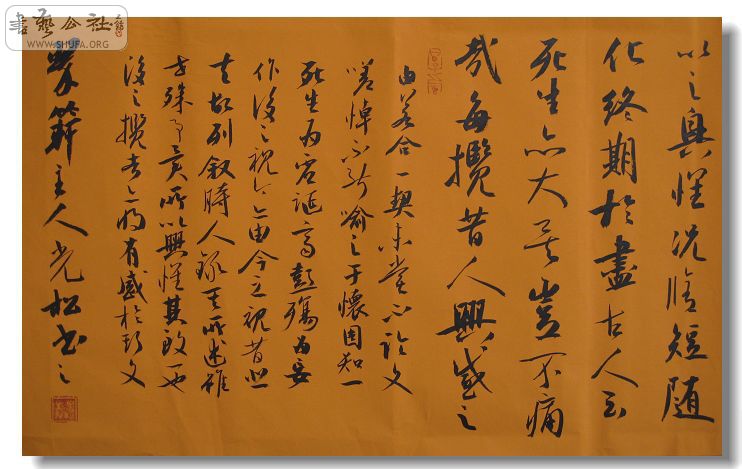 書藝公社
WWW.SHUFA.ORG
以之興懷况脩短随
化終期於盡古人云
死生亦大矣豈不痛
哉每攬昔人興感之
由若合一契未嘗不臨文
嗟悼不能喻之于懷固知一
死生為虛誕齊彭殤為妄
作後之視今亦由今之視昔悲
夫故列叙時人録其所述雖
世殊事異所以興懷其致一也
後之攬者亦将有感於斯文
主人光松书之